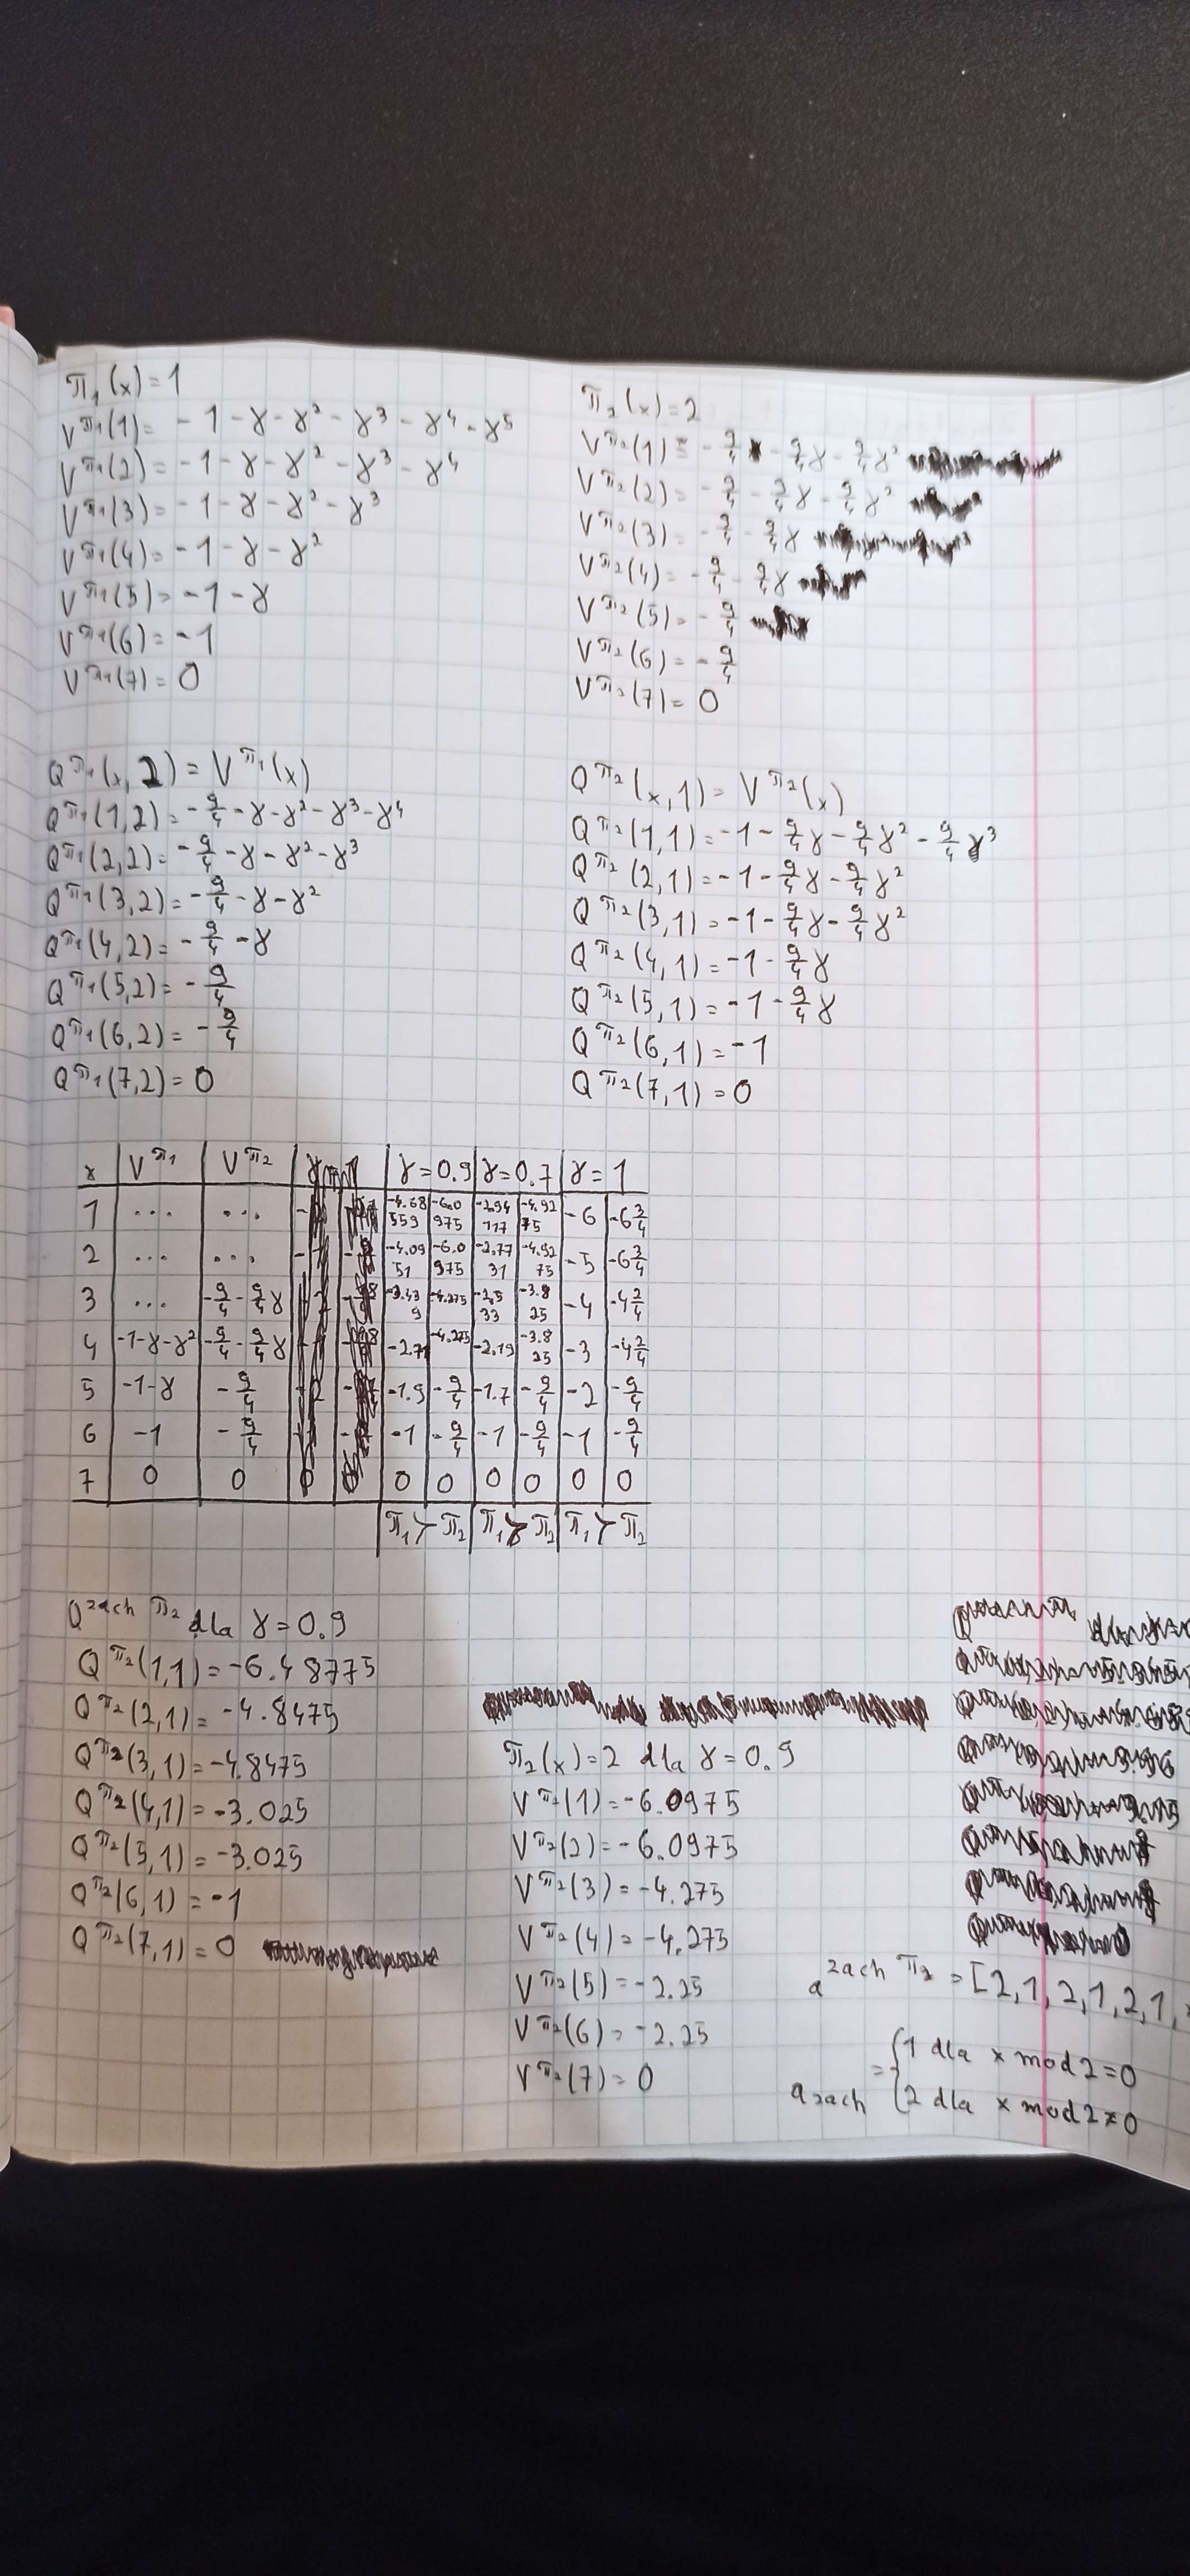 π₁(x)=1
V^π₁(1)= -1-γ-γ²-γ³-γ⁴-γ⁵
V^π₁(2)= -1-γ-γ²-γ³-γ⁴
V^π₁(3)= -1-γ-γ²-γ³
V^π₁(4)= -1-γ-γ²
V^π₁(5)= -1-γ
V^π₁(6)= -1
V^π₁(7)= 0
π₂(x)=2
V^π₂(1)= -9/4 -9/4γ -9/4γ²
V^π₂(2)= -9/4 -9/4γ -9/4γ²
V^π₂(3)= -9/4 -9/4γ
V^π₂(4)= -9/4 -9/4γ
V^π₂(5)= -9/4
V^π₂(6)= -9/4
V^π₂(7)= 0
Q^π₁(x,2)=V^π₁(x)
Q^π₁(1,2)= -9/4-γ-γ²-γ³-γ⁴
Q^π₁(2,2)= -9/4-γ-γ²-γ³
Q^π₁(3,2)= -9/4-γ-γ²
Q^π₁(4,2)= -9/4-γ
Q^π₁(5,2)= -9/4
Q^π₁(6,2)= -9/4
Q^π₁(7,2)= 0
Q^π₂(x,1)=V^π₂(x)
Q^π₂(1,1)= -1-9/4γ-9/4γ²-9/4γ³
Q^π₂(2,1)= -1-9/4γ-9/4γ²
Q^π₂(3,1)= -1-9/4γ-9/4γ²
Q^π₂(4,1)= -1-9/4γ
Q^π₂(5,1)= -1-9/4γ
Q^π₂(6,1)= -1
Q^π₂(7,1)= 0
x V^π₁ V^π₂ γ=0.9 γ=0.7 γ=1
1 ... ... -4.68559 -6.0975 -2.94117 -4.9275 -6 -6 3/4
2 ... ... -4.0951 -6.0975 -2.7731 -4.9275 -5 -6 3/4
3 ... -9/4-9/4γ -3.439 -4.275 -2.533 -3.825 -4 -4 2/4
4 -1-γ-γ² -9/4-9/4γ -2.71 -4.275 -2.19 -3.825 -3 -4 2/4
5 -1-γ -9/4 -1.9 -9/4 -1.7 -9/4 -2 -9/4
6 -1 -9/4 -1 -9/4 -1 -9/4 -1 -9/4
7 0 0 0 0 0 0 0 0 0 0
π₁≻π₂ π₁≻π₂ π₁≻π₂
Q^zach π₂ dla γ=0.9
Q^π₂(1,1)=-6.48775
Q^π₂(2,1)=-4.8475
Q^π₂(3,1)=-4.8475
Q^π₂(4,1)=-3.025
Q^π₂(5,1)=-3.025
Q^π₂(6,1)=-1
Q^π₂(7,1)=0
π₂(x)=2 dla γ=0.9
V^π₂(1)=-6.0975
V^π₂(2)=-6.0975
V^π₂(3)=-4.275
V^π₂(4)=-4.275
V^π₂(5)=-2.25
V^π₂(6)=-2.25
V^π₂(7)=0
a^zach π₂ = [2,1,2,1,2,1,
a zach = {1 dla x mod 2=0
{2 dla x mod 2≠0